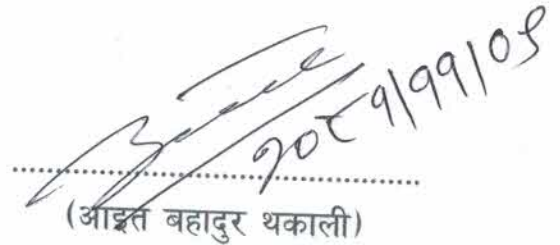 २०८१/११/०९
(आइत बहादुर थकाली)